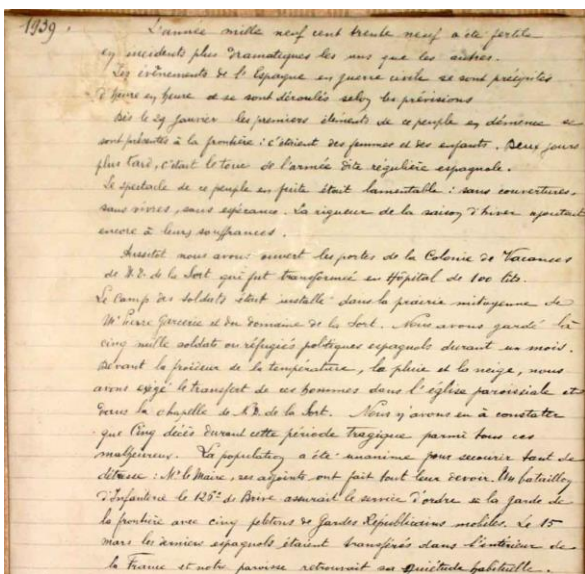 1939.
L'année mille neuf cent trente neuf a été fertile
en incidents plus dramatiques les uns que les autres.
Les évènements de l'Espagne en guerre civile se sont précipités
d'heure en heure et se sont déroulés selon les prévisions
Dès le 29 janvier les premiers éléments de ce peuple en démence se
sont présentés à la frontière : c'étaient des femmes et des enfants. Deux jours
plus tard, c'était le tour de l'armée dite régulière espagnole.
Le spectacle de ce peuple en fuite était lamentable : sans couvertures
sans vivres, sans espérance. La rigueur de la saison d'hiver ajoutait
encore à leurs souffrances.
Aussitôt nous avons ouvert les portes de la Colonie de Vacances
de N.D. de la Sort qui fut transformée en Hôpital de 100 lits.
Le camp des soldats était installé dans la prairie mitoyenne de
Mr Pierre et du domaine de la Sort. Nous avons gardé là
cinq mille soldats ou réfugiés politiques espagnols durant un mois.
Devant la froideur de la température, la pluie et la neige, nous
avons exigé le transfert de ces hommes dans l'église paroissiale et
dans la chapelle de N.D. de la Sort. Nous n'avons eu à constater
que Cinq décès durant cette période tragique parmi tous ces
malheureux. La population a été unanime pour secourir tant de
détresse : Mr le Maire, ses adjoints ont fait tout leur devoir. Un bataillon
d'Infanterie le 126e de Brive assurait le service d'ordre et la garde de
la frontière avec cinq pelotons de Gardes Républicains mobiles. Le 15
mars les derniers espagnols étaient transférés dans l'intérieur de
la France et notre paroisse retrouvait sa quiétude habituelle.